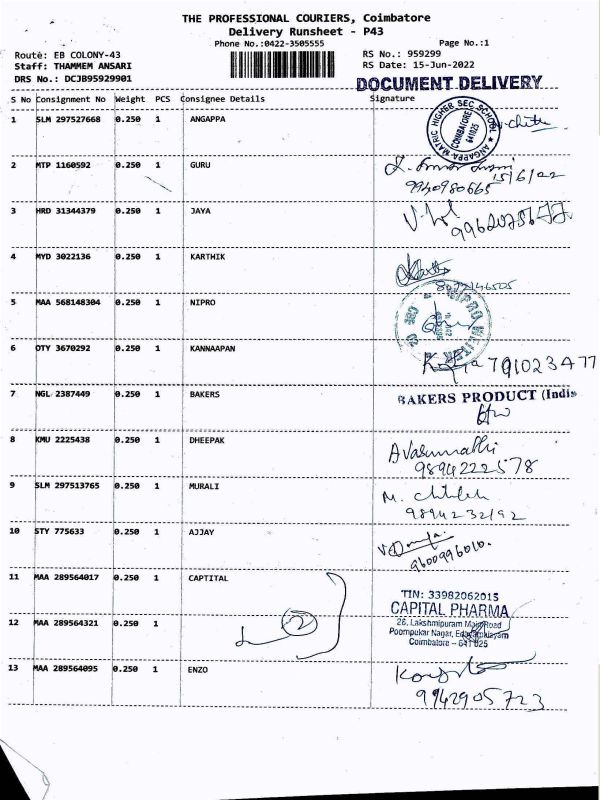 THE PROFESSIONAL COURIERS, Coimbatore
Delivery Runsheet - P43
Phone No.:0422-3505555
Page No.:1
Route: EB COLONY-43
RS No.: 959299
Staff: THAMMEM ANSARI
RS Date: 15-Jun-2022
DRS No.: DCJB95929901
DOCUMENT DELIVERY
S No Consignment No Weight PCS Consignee Details Signature
1 SLM 297527668 0.250 1 ANGAPPA
ANGAPPA MATRIC HIGHER SEC SCHOOL
COIMBATORE
641025
2 MTP 1160592 0.250 1 GURU
15/6/22
9940980665
3 HRD 31344379 0.250 1 JAYA
4 MYD 3022136 0.250 1 KARTHIK
5 MAA 568148304 0.250 1 NIPRO
6 OTY 3670292 0.250 1 KANNAAPAN
7 NGL 2387449 0.250 1 BAKERS
BAKERS PRODUCT (India
8 KMU 2225438 0.250 1 DHEEPAK
A Vasumathi
9894222578
9 SLM 297513765 0.250 1 MURALI
9894232192
10 STY 775633 0.250 1 AJJAY
9600996010.
11 MAA 289564017 0.250 1 CAPTITAL
TIN: 33982062015
CAPITAL PHARMA
12 MAA 289564321 0.250 1
2
26, Lakshmipuram Main Road
Poompukar Nagar, Edayarpalayam
Coimbatore - 641 025
13 MAA 289564095 0.250 1 ENZO
9942905723